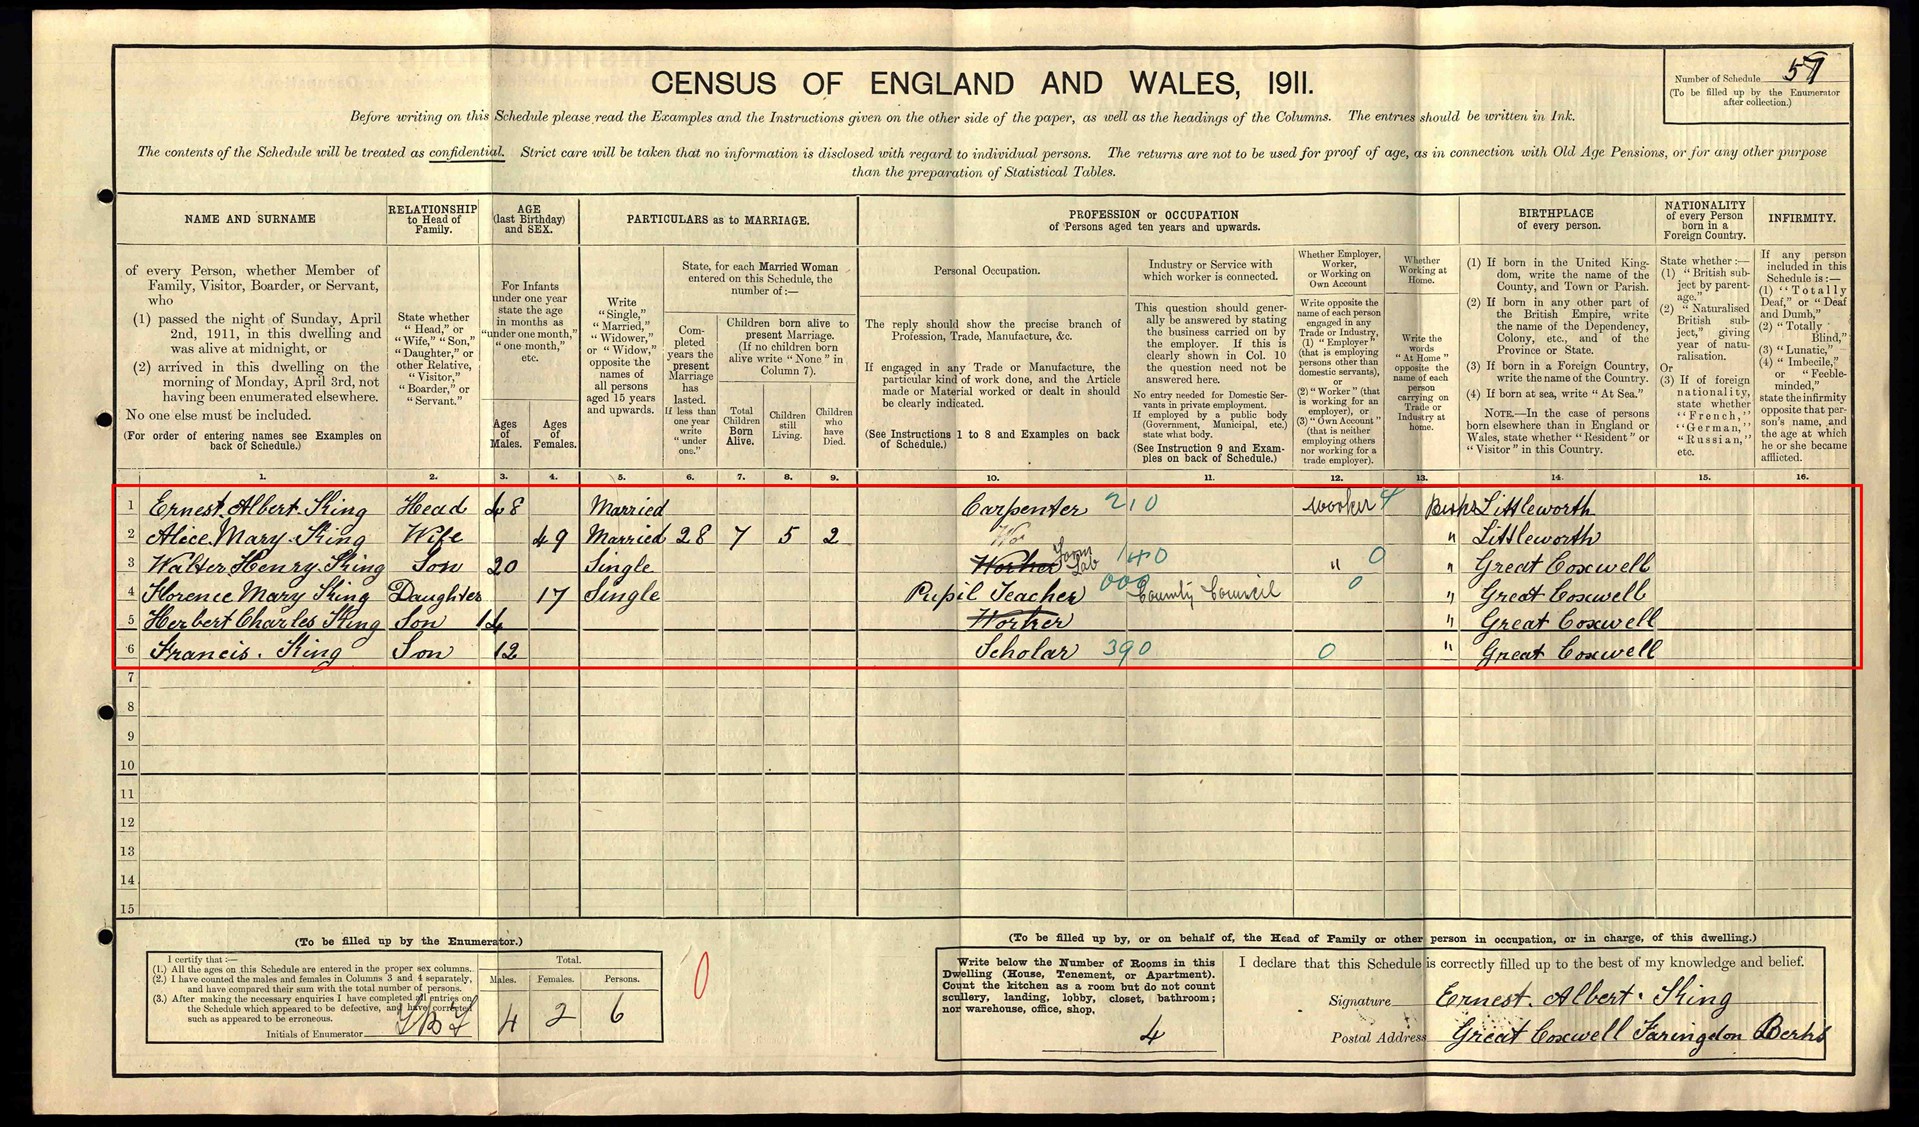 CENSUS OF ENGLAND AND WALES, 1911.
Number of Schedule
(To be filled up by the Enumerator
after collection.)
Before writing on this Schedule please read the Examples and the Instructions given on the other side of the paper, as well as the headings of the Columns. The entries should be written in Ink.
The contents of the Schedule will be treated as confidential. Strict care will be taken that no information is disclosed with regard to individual persons. The returns are not to be used for proof of age, as in connection with Old Age Pensions, or for any other purpose
than the preparation of Statistical Tables.
NAME AND SURNAME
of every Person, whether Member of
Family, Visitor, Boarder, or Servant,
who
(1) passed the night of Sunday, April
2nd, 1911, in this dwelling and
was alive at midnight, or
(2) arrived in this dwelling on the
morning of Monday, April 3rd, not
having been enumerated elsewhere.
No one else must be included.
(For order of entering names see Examples on
back of Schedule.)
RELATIONSHIP
to Head of
Family.
State whether
"Head," or
"Wife," "Son,"
"Daughter," or
other Relative,
"Visitor,"
"Boarder," or
"Servant."
AGE
(last Birthday)
and SEX.
For Infants
under one year
state the age
in months as
"under one month,"
"one month,"
etc.
Ages
of
Males.
Ages
of
Females.
PARTICULARS as to MARRIAGE.
Write
"Single,"
"Married,"
"Widower,"
or "Widow,"
opposite the
names of
all persons
aged 15 years
and upwards.
State, for each Married Woman
entered on this Schedule, the
number of:—
Com-
pleted
years the
present
Marriage
has
lasted.
If less than
one year
write
"under
one."
Children born alive to
present Marriage.
(If no children born
alive write "None" in
Column 7).
Total
Children
Born
Alive.
Children
still
Living.
Children
who
have
Died.
PROFESSION or OCCUPATION
of Persons aged ten years and upwards.
Personal Occupation.
The reply should show the precise branch of
Profession, Trade, Manufacture, &c.
If engaged in any Trade or Manufacture, the
particular kind of work done, and the Article
made or Material worked or dealt in should
be clearly indicated.
(See Instructions 1 to 8 and Examples on back
of Schedule.)
Industry or Service with
which worker is connected.
This question should gener-
ally be answered by stating
the business carried on by
the employer. If this is
clearly shown in Col. 10
the question need not be
answered here.
No entry needed for Domestic Ser-
vants in private employment.
If employed by a public body
(Government, Municipal, etc.)
state what body.
(See Instruction 9 and Exam-
ples on back of Schedule.)
Whether Employer,
Worker,
or Working on
Own Account
Write opposite the
name of each person
engaged in any
Trade or Industry,
(1) "Employer"
(that is employing
persons other than
domestic servants),
or
(2) "Worker" (that
is working for an
employer), or
(3) "Own Account"
(that is neither
employing others
nor working for a
trade employer).
Whether
Working at
Home.
Write the
words
"At Home"
opposite the
name of each
person
carrying on
Trade or
Industry at
home.
BIRTHPLACE
of every person.
(1) If born in the United King-
dom, write the name of the
County, and Town or Parish.
(2) If born in any other part of
the British Empire, write
the name of the Dependency,
Colony, etc., and of the
Province or State.
(3) If born in a Foreign Country,
write the name of the Country.
(4) If born at sea, write "At Sea."
NOTE.—In the case of persons
born elsewhere than in England or
Wales, state whether "Resident" or
"Visitor" in this Country.
NATIONALITY
of every Person
born in a
Foreign Country.
State whether:—
(1) "British sub-
ject by parent-
age."
(2) "Naturalised
British sub-
ject," giving
year of natu-
ralisation.
Or
(3) If of foreign
nationality,
state whether
"French,"
"German,"
"Russian,"
etc.
INFIRMITY.
If any person
included in this
Schedule is:—
(1) "Totally
Deaf," or "Deaf
and Dumb,"
(2) "Totally
Blind,"
(3) "Lunatic,"
(4) "Imbecile,"
or "Feeble-
minded,"
state the infirmity
opposite that per-
son's name, and
the age at which
he or she became
afflicted.
1. 2. 3. 4. 5. 6. 7. 8. 9. 10. 11. 12. 13. 14. 15. 16.
1 Ernest Albert King Head 48 Married Carpenter 210 Worker 4 Berks Littleworth
2 Alice Mary King Wife 49 Married 28 7 5 2 Wo " Littleworth
3 Walter Henry King Son 20 Single Worker Farm Lab 140 " 0 " Great Coxwell
4 Florence Mary King Daughter 17 Single Pupil Teacher 000 County Council 0 " Great Coxwell
5 Herbert Charles King Son 14 Worker " Great Coxwell
6 Francis. King Son 12 Scholar 390 0 " Great Coxwell
7
8
9
10
11
12
13
14
15
(To be filled up by the Enumerator.)
I certify that:—
(1.) All the ages on this Schedule are entered in the proper sex columns.
(2.) I have counted the males and females in Columns 3 and 4 separately,
and have compared their sum with the total number of persons.
(3.) After making the necessary enquiries I have completed all entries on
the Schedule which appeared to be defective, and have corrected
such as appeared to be erroneous.
Initials of Enumerator
Total.
Males. Females. Persons.
4 2 6
0
(To be filled up by, or on behalf of, the Head of Family or other person in occupation, or in charge, of this dwelling.)
Write below the Number of Rooms in this
Dwelling (House, Tenement, or Apartment).
Count the kitchen as a room but do not count
scullery, landing, lobby, closet, bathroom;
nor warehouse, office, shop,
4
I declare that this Schedule is correctly filled up to the best of my knowledge and belief.
Signature Ernest. Albert. King
Postal Address Great Coxwell Faringdon Berks